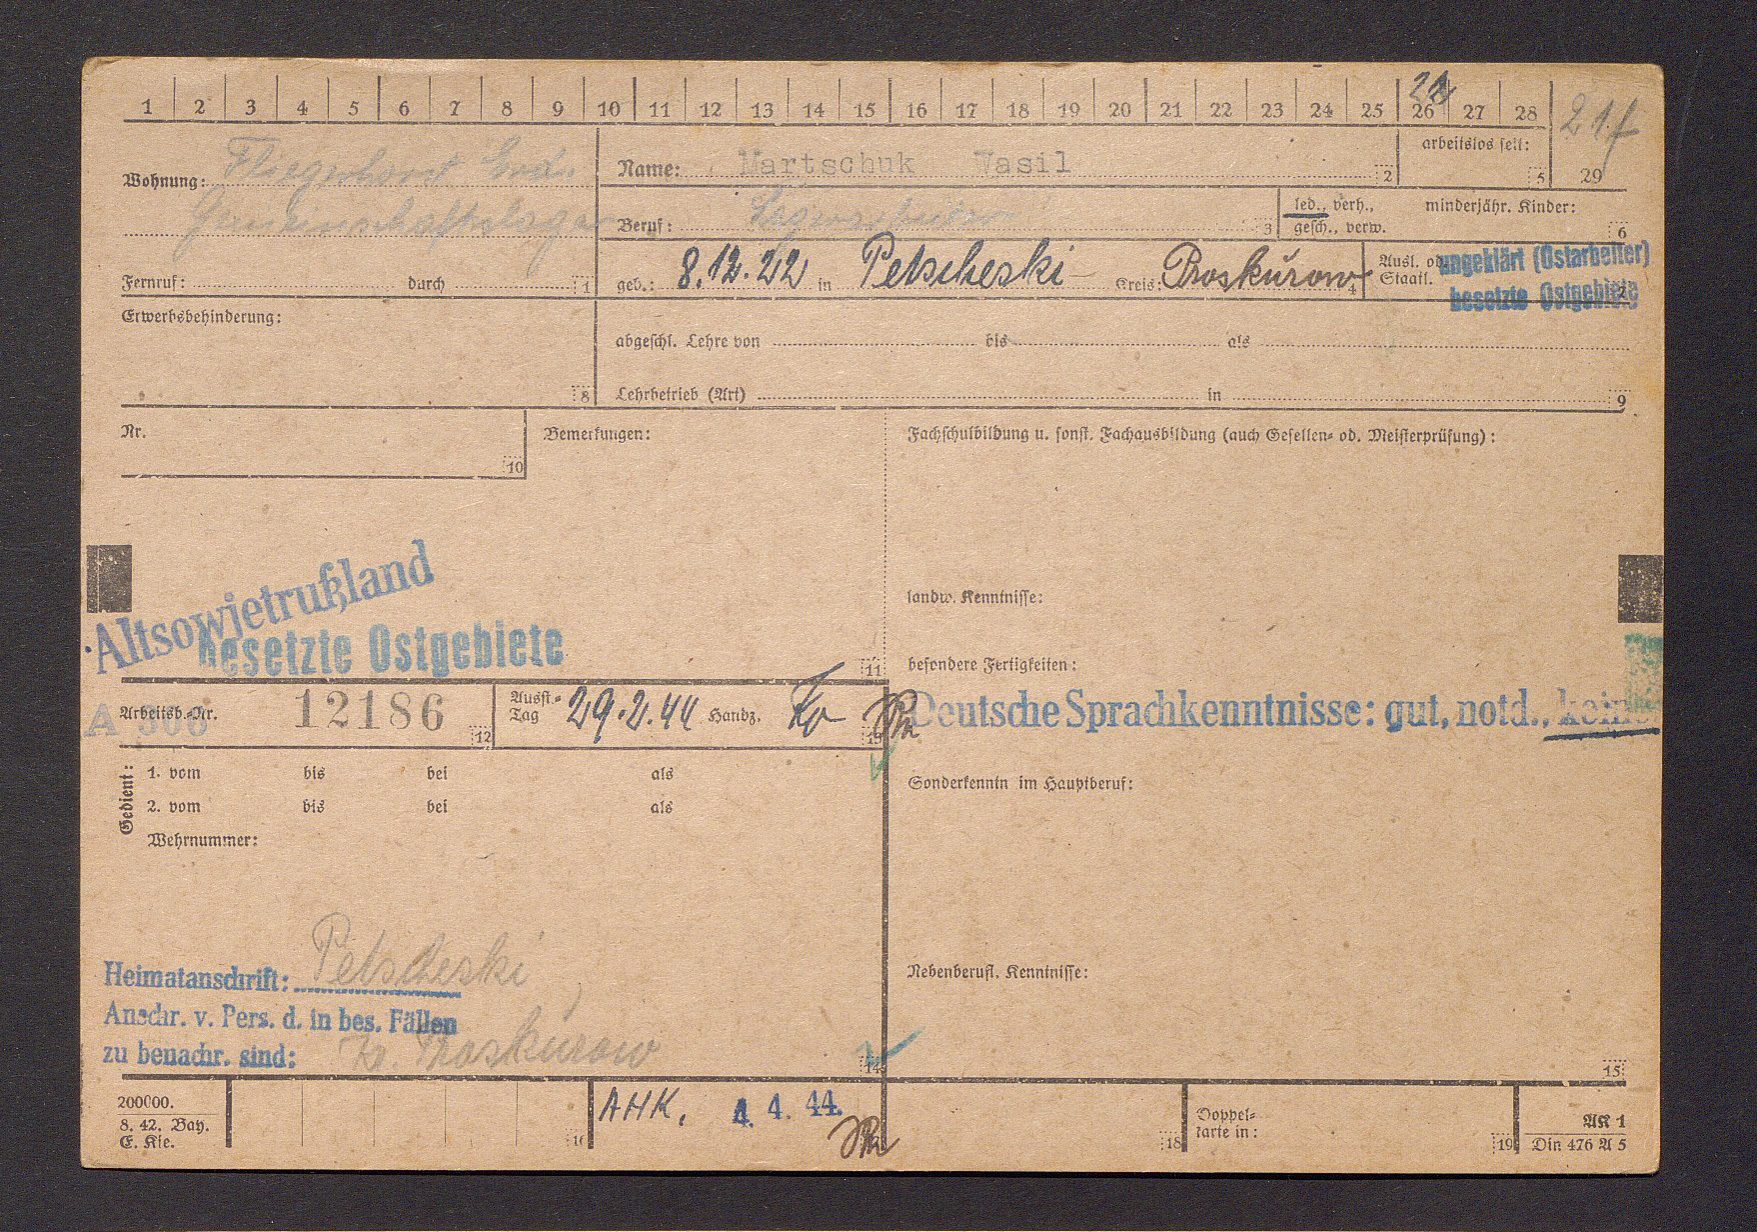 1 2 3 4 5 6 7 8 9 10 11 12 13 14 15 16 17 18 19 20 21 22 23 24 25 26 27 28 29
21f
Wohnung: Fliegerhorst Erd.
Gemeinschaftslager
Fernruf: durch 1
Name: Martschuk Wasil 2
arbeitslos seit: 5
Beruf: 3
led., verh.,
gesch., verw.
minderjähr. Kinder: 6
geb.: 8.12.22 in Petscheski Kreis: Proskurow 4
Ausl. od.
Staatl.
ungeklärt (Ostarbeiter)
besetzte Ostgebiete
Erwerbsbehinderung: 8
abgeschl. Lehre von bis als
Lehrbetrieb (Art) in 9
Nr. 10
Bemerkungen:
Fachschulbildung u. sonst. Fachausbildung (auch Gesellen= od. Meisterprüfung):
Altsowjetrußland
besetzte Ostgebiete
11
landw. Kenntnisse:
besondere Fertigkeiten:
Arbeitsb.=Nr. 12186 12
A 308
Ausst.=
Tag 29.2.44 Handz. 13
Deutsche Sprachkenntnisse: gut, notd., keine
Gedient:
1. vom bis bei als
2. vom bis bei als
Wehrnummer:
Sonderkenntn im Hauptberuf:
Heimatanschrift: Petscheski
Anschr. v. Pers. d. in bes. Fällen
zu benachr. sind: Kr. Proskurow
14
Nebenberufl. Kenntnisse:
15
200000.
8. 42. Bay.
E. Kie.
16
AHK. 4. 4. 44.
18
Doppel=
karte in: 19
AK 1
Din 476 A 5